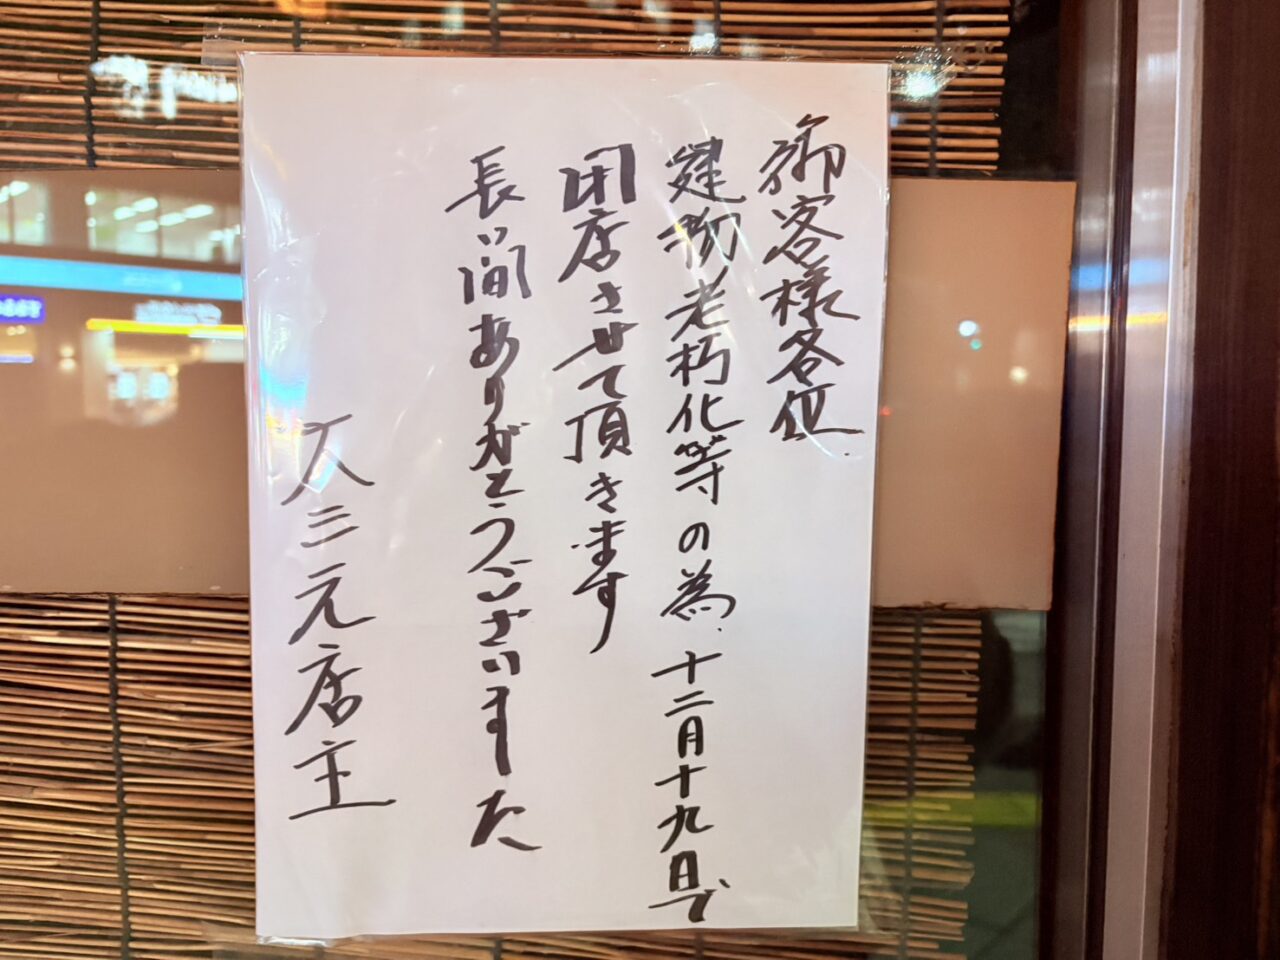 御客様各位
建物老朽化等の為十二月十九日で
閉店させて頂きます
長い間ありがとうございました
大三元店主